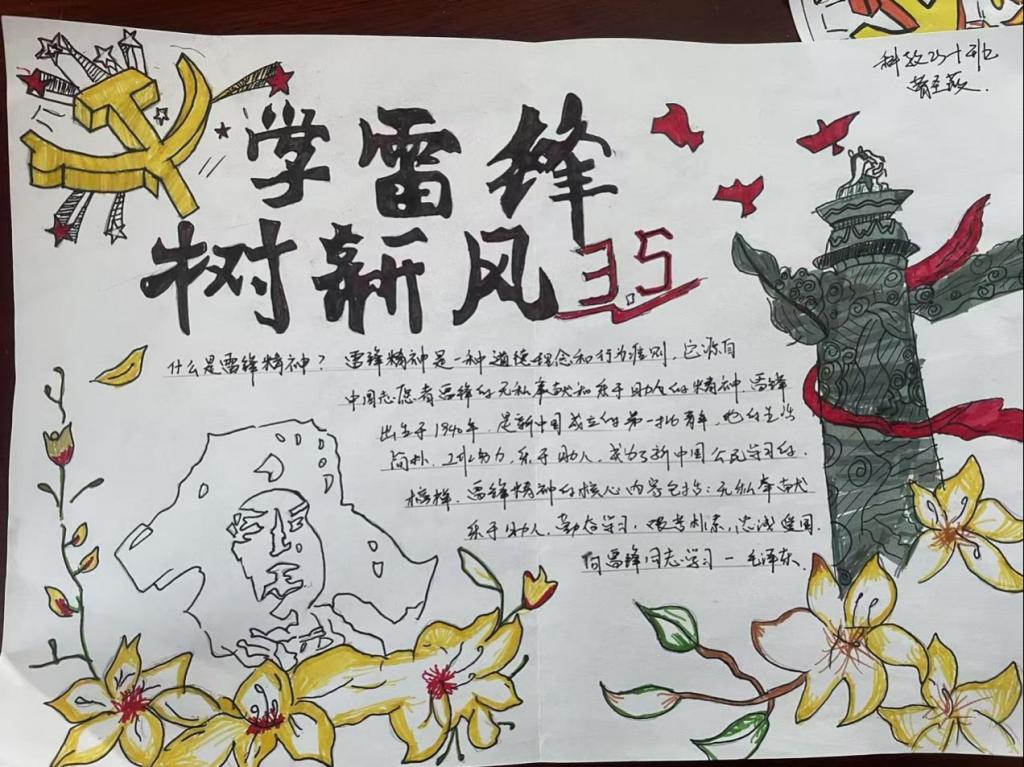 学雷锋
树新风 3.5
什么是雷锋精神？雷锋精神是一种道德理念和行为准则，它源自
中国志愿者雷锋的无私奉献和乐于助人的精神，雷锋
出生于1940年，是新中国成立的第一批青年，他的生活
简朴，工作努力，乐于助人，成为了新中国公民学习的
榜样，雷锋精神的核心内容包括：无私奉献
乐于助人，勤奋学习，艰苦朴素，忠诚爱国
向雷锋同志学习－毛泽东